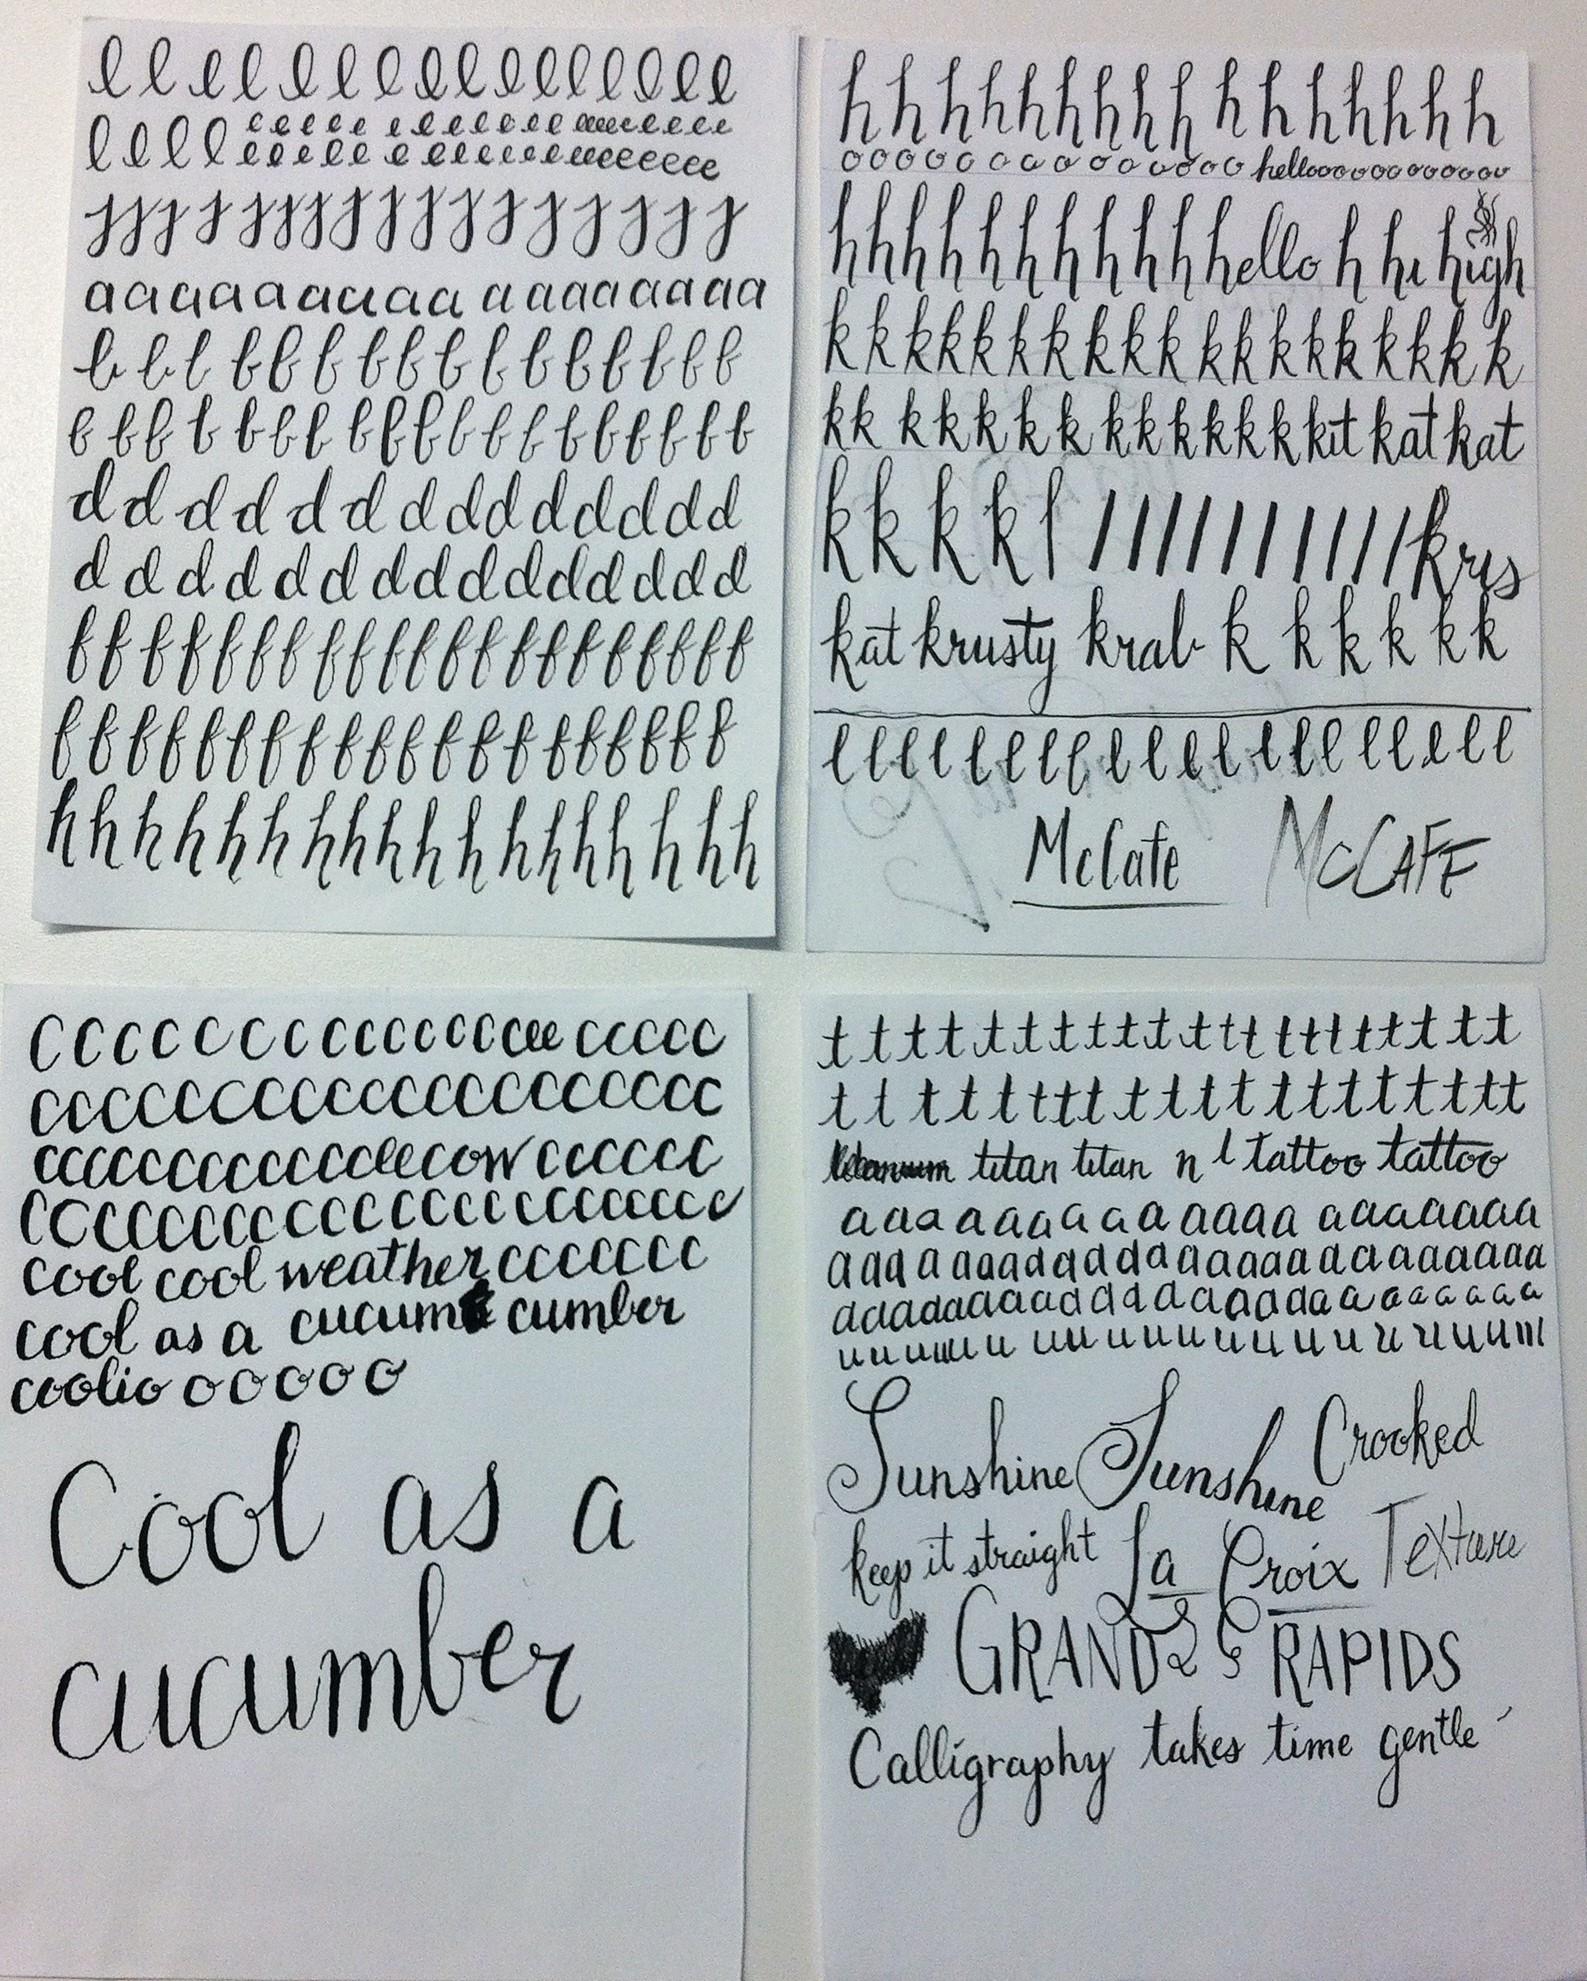 l l l l l l l l l l l l l l l l
l l l l e e e e e e e e e e e e e e e e e e e e e
e e e e e e e e e e e e e e e e e e e e e
a a a a a a a a a a a a a a a a a a
b b b b b b b b b b b b b b b b
b b b b b b b b b b b b b b b b b
d d d d d d d d d d d d d
d d d d d d d d d d d d d d d
f f f f f f f f f f f f f f f f f f f
f f f f f f f f f f f f f f f f f f f f
h h h h h h h h h h h h h h h h h
h h h h h h h h h h h h h h h h
o o o o o o o o o o o o o o hellooooooooooooo
h h h h h h h h h h hello h hi high
k k k k k k k k k k k k k k k k k k k
k k k k k k k k k k k k k kit kat kat
k k k k l / / / / / / / / / / kris
kat krusty krab k k k k k k
l l l l l l l l l l l l l l l l l l l
McCafe McCAFE
c c c c c c c c c c c c c c c e e c c c c c
c c c c c c c c c c c c c c c c c c c c
c c c c c c c c c c c c c e e cow c c c c c c
c o c c c c c c c c c c c c c c c c c c c
cool cool weather c c c c c c c
cool as a cucum cumber
coolio o o o o o
Cool as a
cucumber
t t t t t t t t t t t t t t t t t t t t
t t t t t t t t t t t t t t t t t t t
titan titan n l tattoo tattoo
a a a a a a a a a a a a a a a a a a a a
a a a a a a a a a a a a a a a a a a a a a a
a a a a a a a a a a a a a a a a a a a a a a
u u u u u u u u u u u u u u u u u u u
Sunshine Sunshine Crooked
keep it straight La Croix Texture
GRAND RAPIDS
Calligraphy takes time gentle